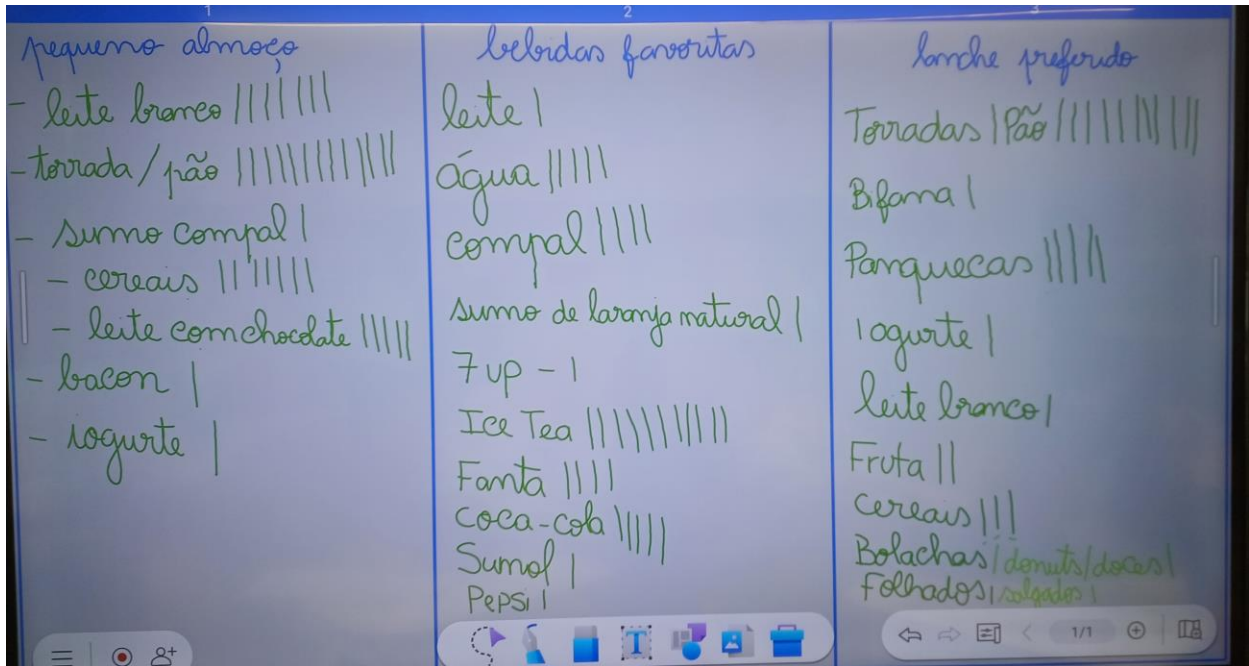 1
pequeno almoço
- leite branco ||||||||
- torrada / pão |||||||||||||
- sumo compal |
- cereais ||||||||
- leite com chocolate |||||
- bacon |
- iogurte |
2
bebidas favoritas
leite |
água |||||
compal ||||
sumo de laranja natural |
7 up - 1
Ice Tea |||||||||||
Fanta ||||
coca-cola |||||
Sumol |
Pepsi |
3
lanche preferido
Torradas | Pão |||||||||||
Bifana |
Panquecas |||||
iogurte |
leite branco |
Fruta ||
cereais |||
Bolachas / donuts / doces |
Folhados | salgados |
1/1